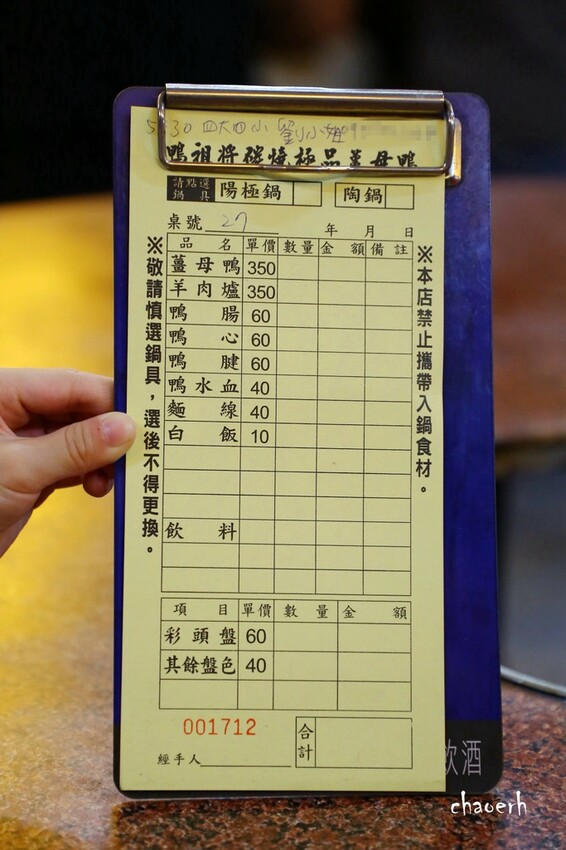 5:30 四大四小 劉小姐
鴨祖將碳燒極品薑母鴨
請點選鍋具 陽極鍋 陶鍋
桌號 27 年 月 日
※敬請慎選鍋具，選後不得更換。
※本店禁止攜帶入鍋食材。
品名 單價 數量 金額 備註
薑母鴨 350
羊肉爐 350
鴨腸 60
鴨心 60
鴨腱 60
鴨水血 40
麵線 40
白飯 10
飲料
項目 單價 數量 金額
彩頭盤 60
其餘盤色 40
001712
合計
經手人
飲酒
chaoerh